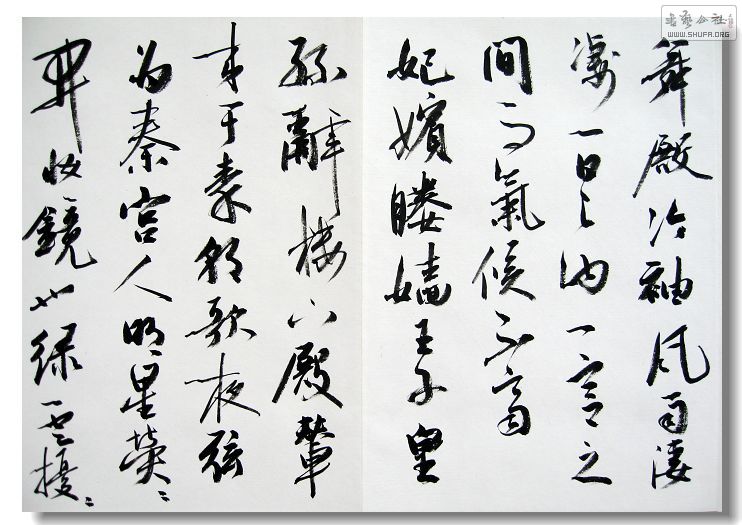 舞殿冷袖风雨凄
凄一日之内一宫之
間而氣候不齊
妃嬪媵嬙王子皇
孫辭樓下殿輦
来于秦朝歌夜弦
为秦宫人明星熒々
開妝鏡也绿雲擾々
书艺公社
WWW.SHUFA.ORG